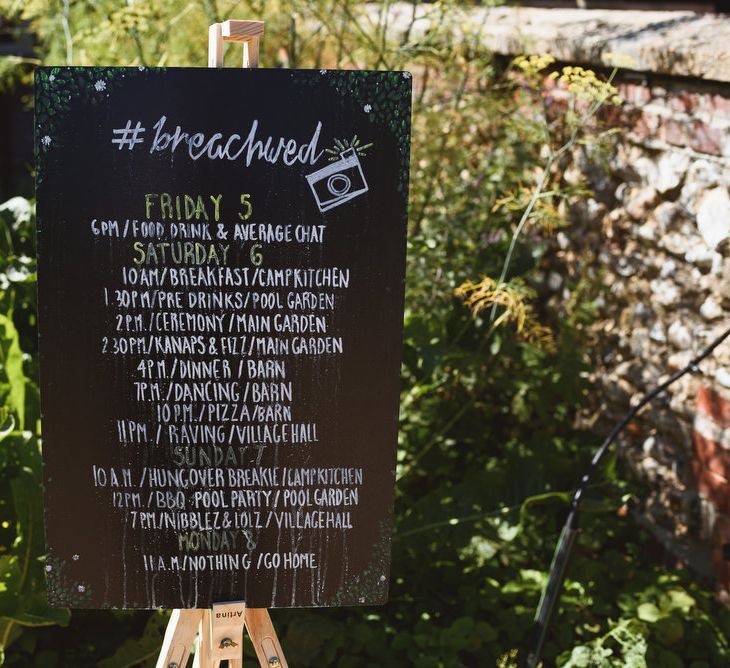 #breachwed
FRIDAY 5
6PM/FOOD, DRINK & AVERAGE CHAT
SATURDAY 6
10AM/BREAKFAST/CAMPKITCHEN
1.30PM/PRE DRINKS/POOL GARDEN
2PM./CEREMONY/MAIN GARDEN
2.30PM/KANAPS & FIZZ/MAIN GARDEN
4PM./DINNER/BARN
7PM./DANCING/BARN
10PM./PIZZA/BARN
11PM./RAVING/VILLAGE HALL
SUNDAY 7
10A.M./HUNGOVER BREAKIE/CAMPKITCHEN
12PM./BBQ POOL PARTY/POOL GARDEN
7PM/NIBBLEZ & LOLZ/VILLAGEHALL
MONDAY 8
11A.M/NOTHING/GO HOME
Artina